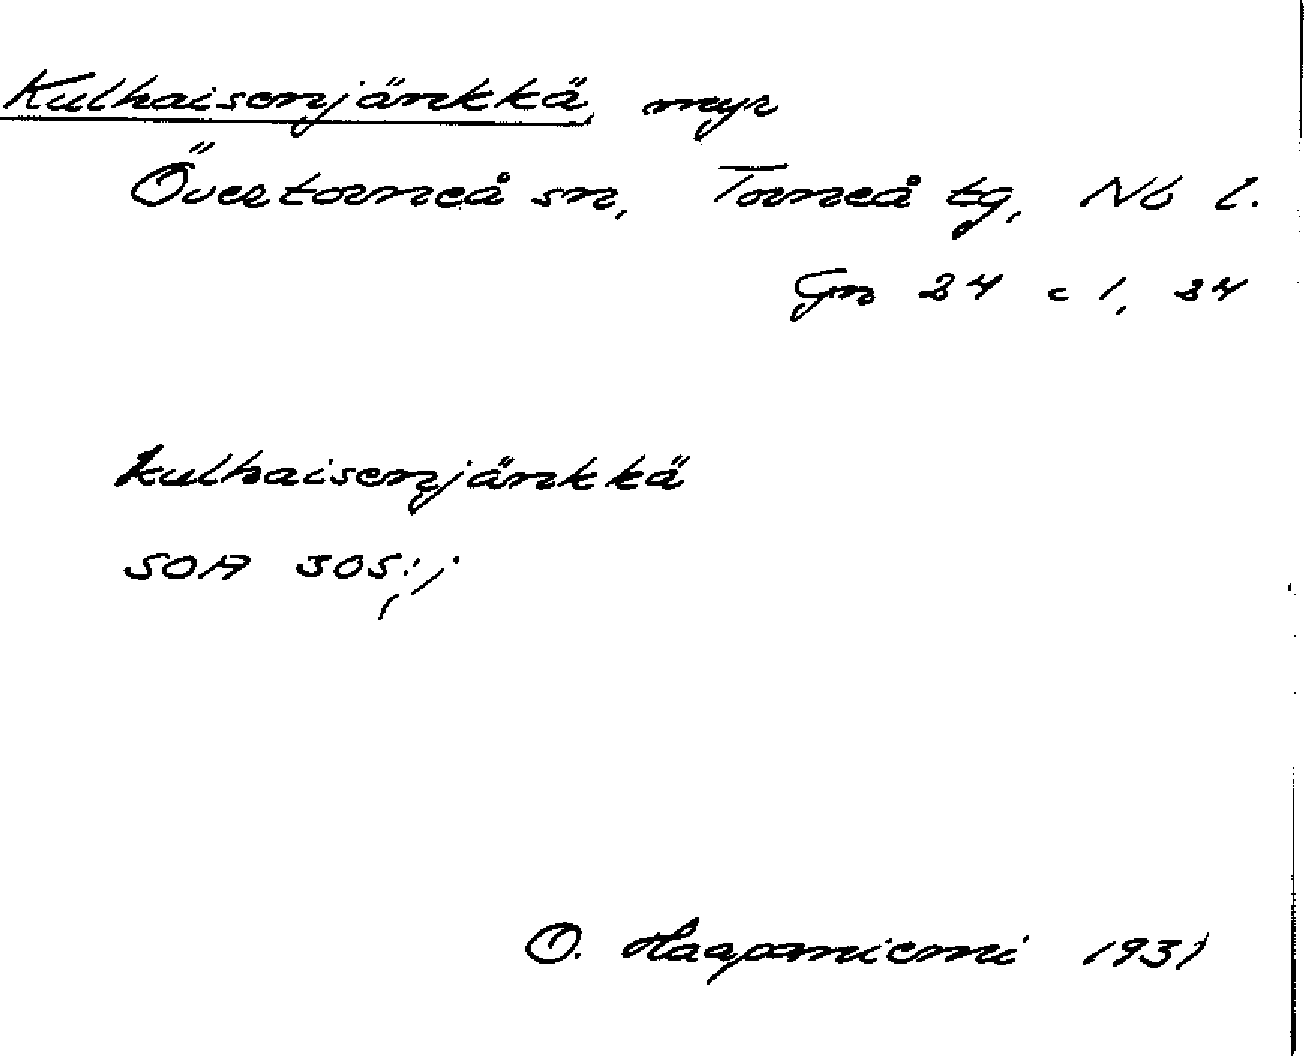 Kulhaisenjänkkä, myr
Övertorneå sn, Torneå tg, Nb l.
Gn 24 c 1, 24
kulhaisenjänkkä
SOA 305:j
O. Haapaniemi 1931